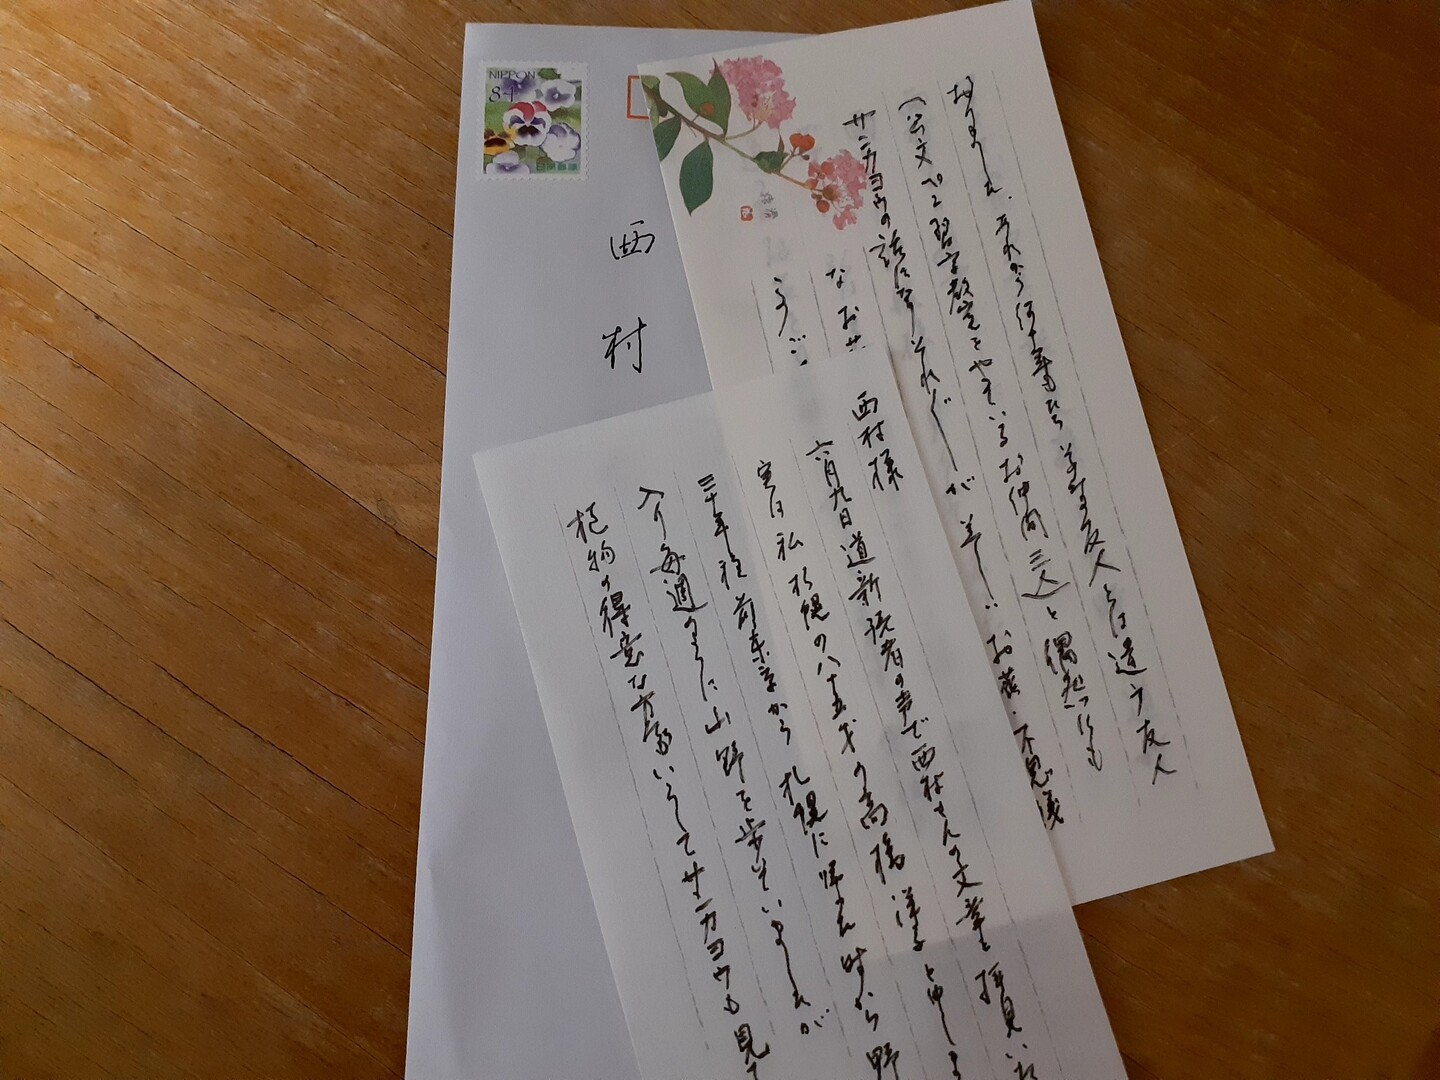 NIPPON
84
日本郵便
西村
西村様
六月九日道新読者の声で西村さんの文章を拝見いた
実は私札幌の八十五才の高橋洋子と申しま
三十年程前東京から札幌に帰った時から野
入り毎週のように山野を歩いていましたが
植物の得意な方がいらしてサンカヨウも見て
おりました、それから何十年もたち
友人とは違う友人
(公文で習字教室をやっているお仲間三人)と偶然にも
サンカヨウの話になりそれぐしが差し:お花・不思議
なお